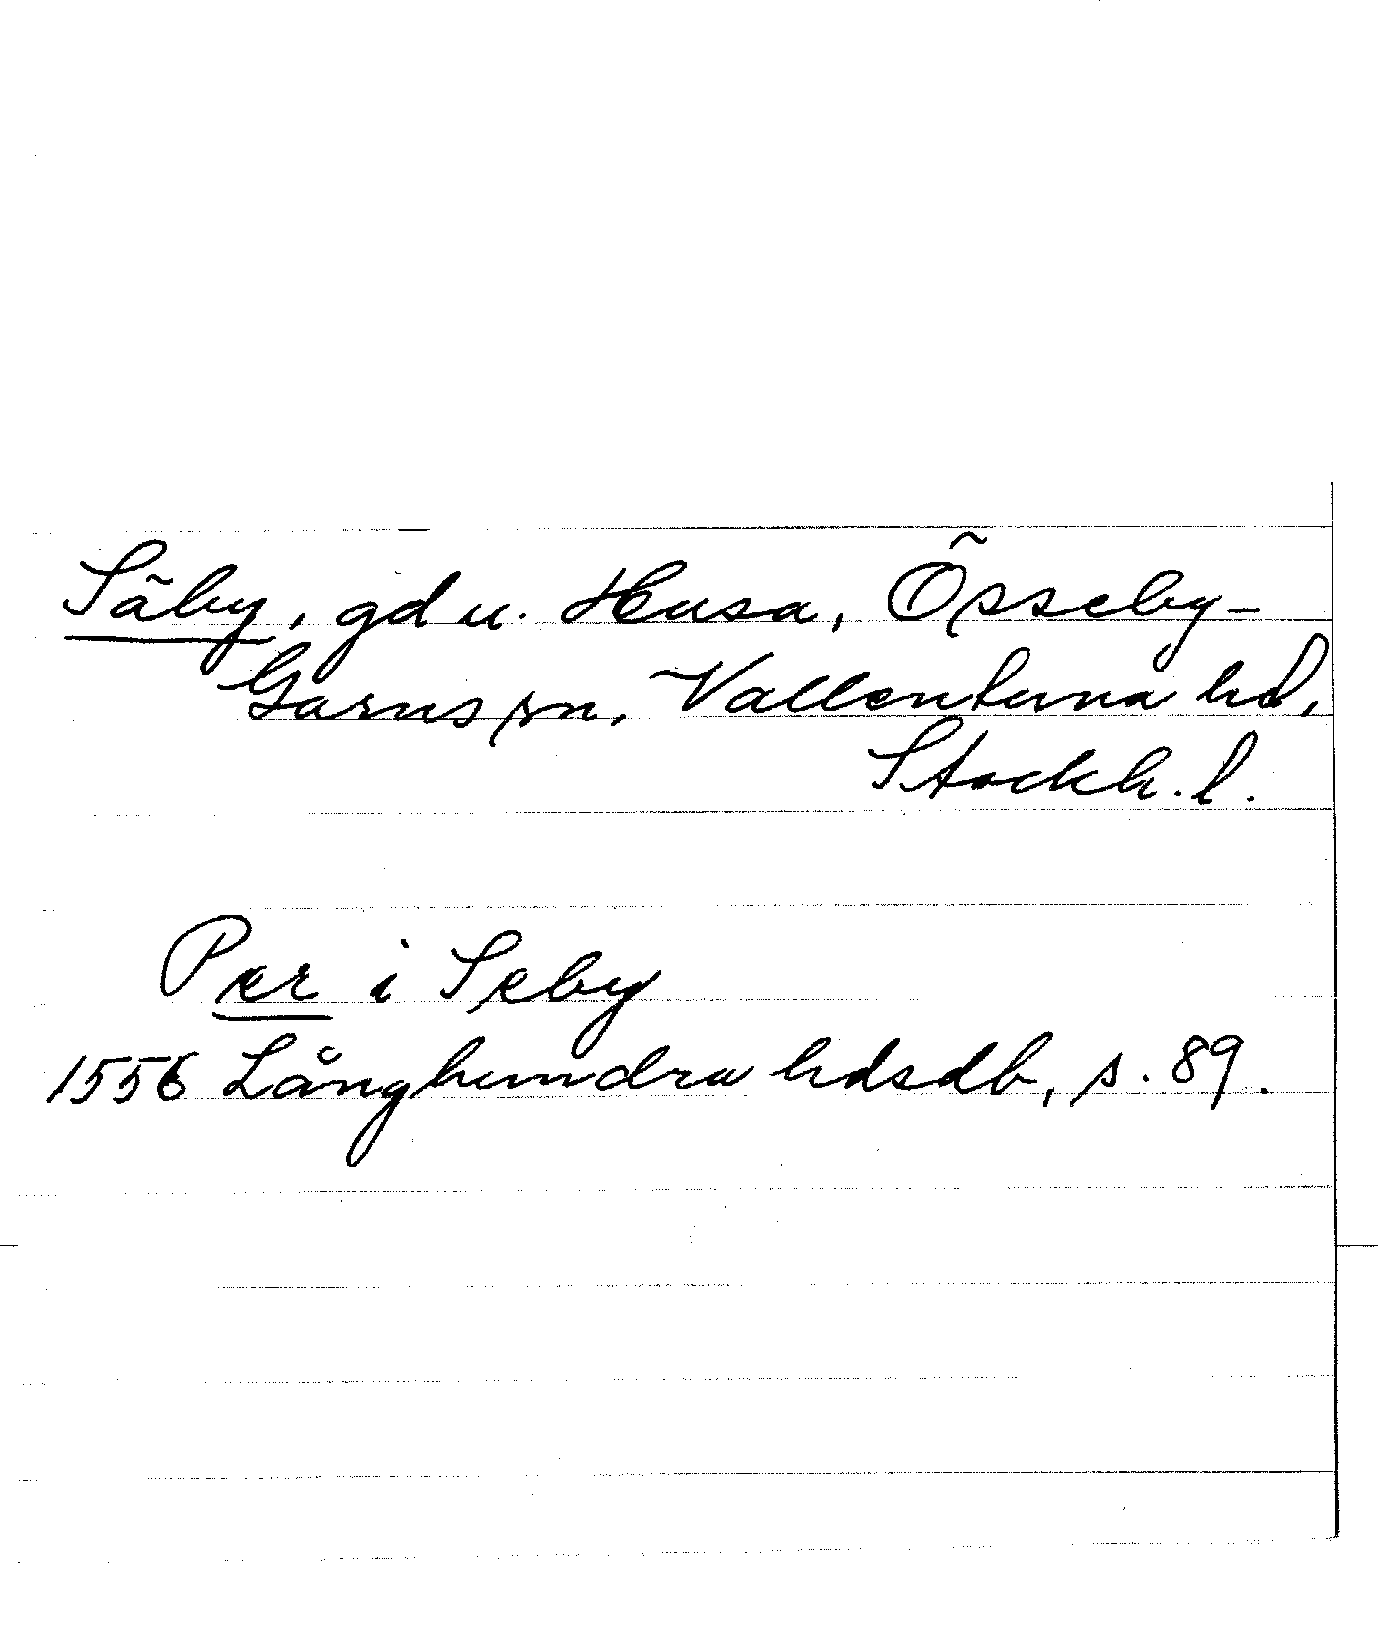 Säby, gd u. Husa, Össeby-
Garns sn, Vallentuna hd,
Stockh. l.
Per i Seby
1556 Långhundra hdsdb, s. 89.